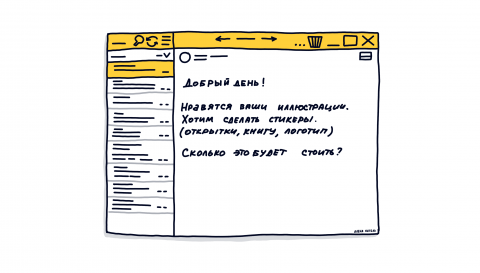 Добрый день!
Нравятся ваши иллюстрации.
Хотим сделать стикеры.
(открытки, книгу, логотип)
Сколько это будет стоить?